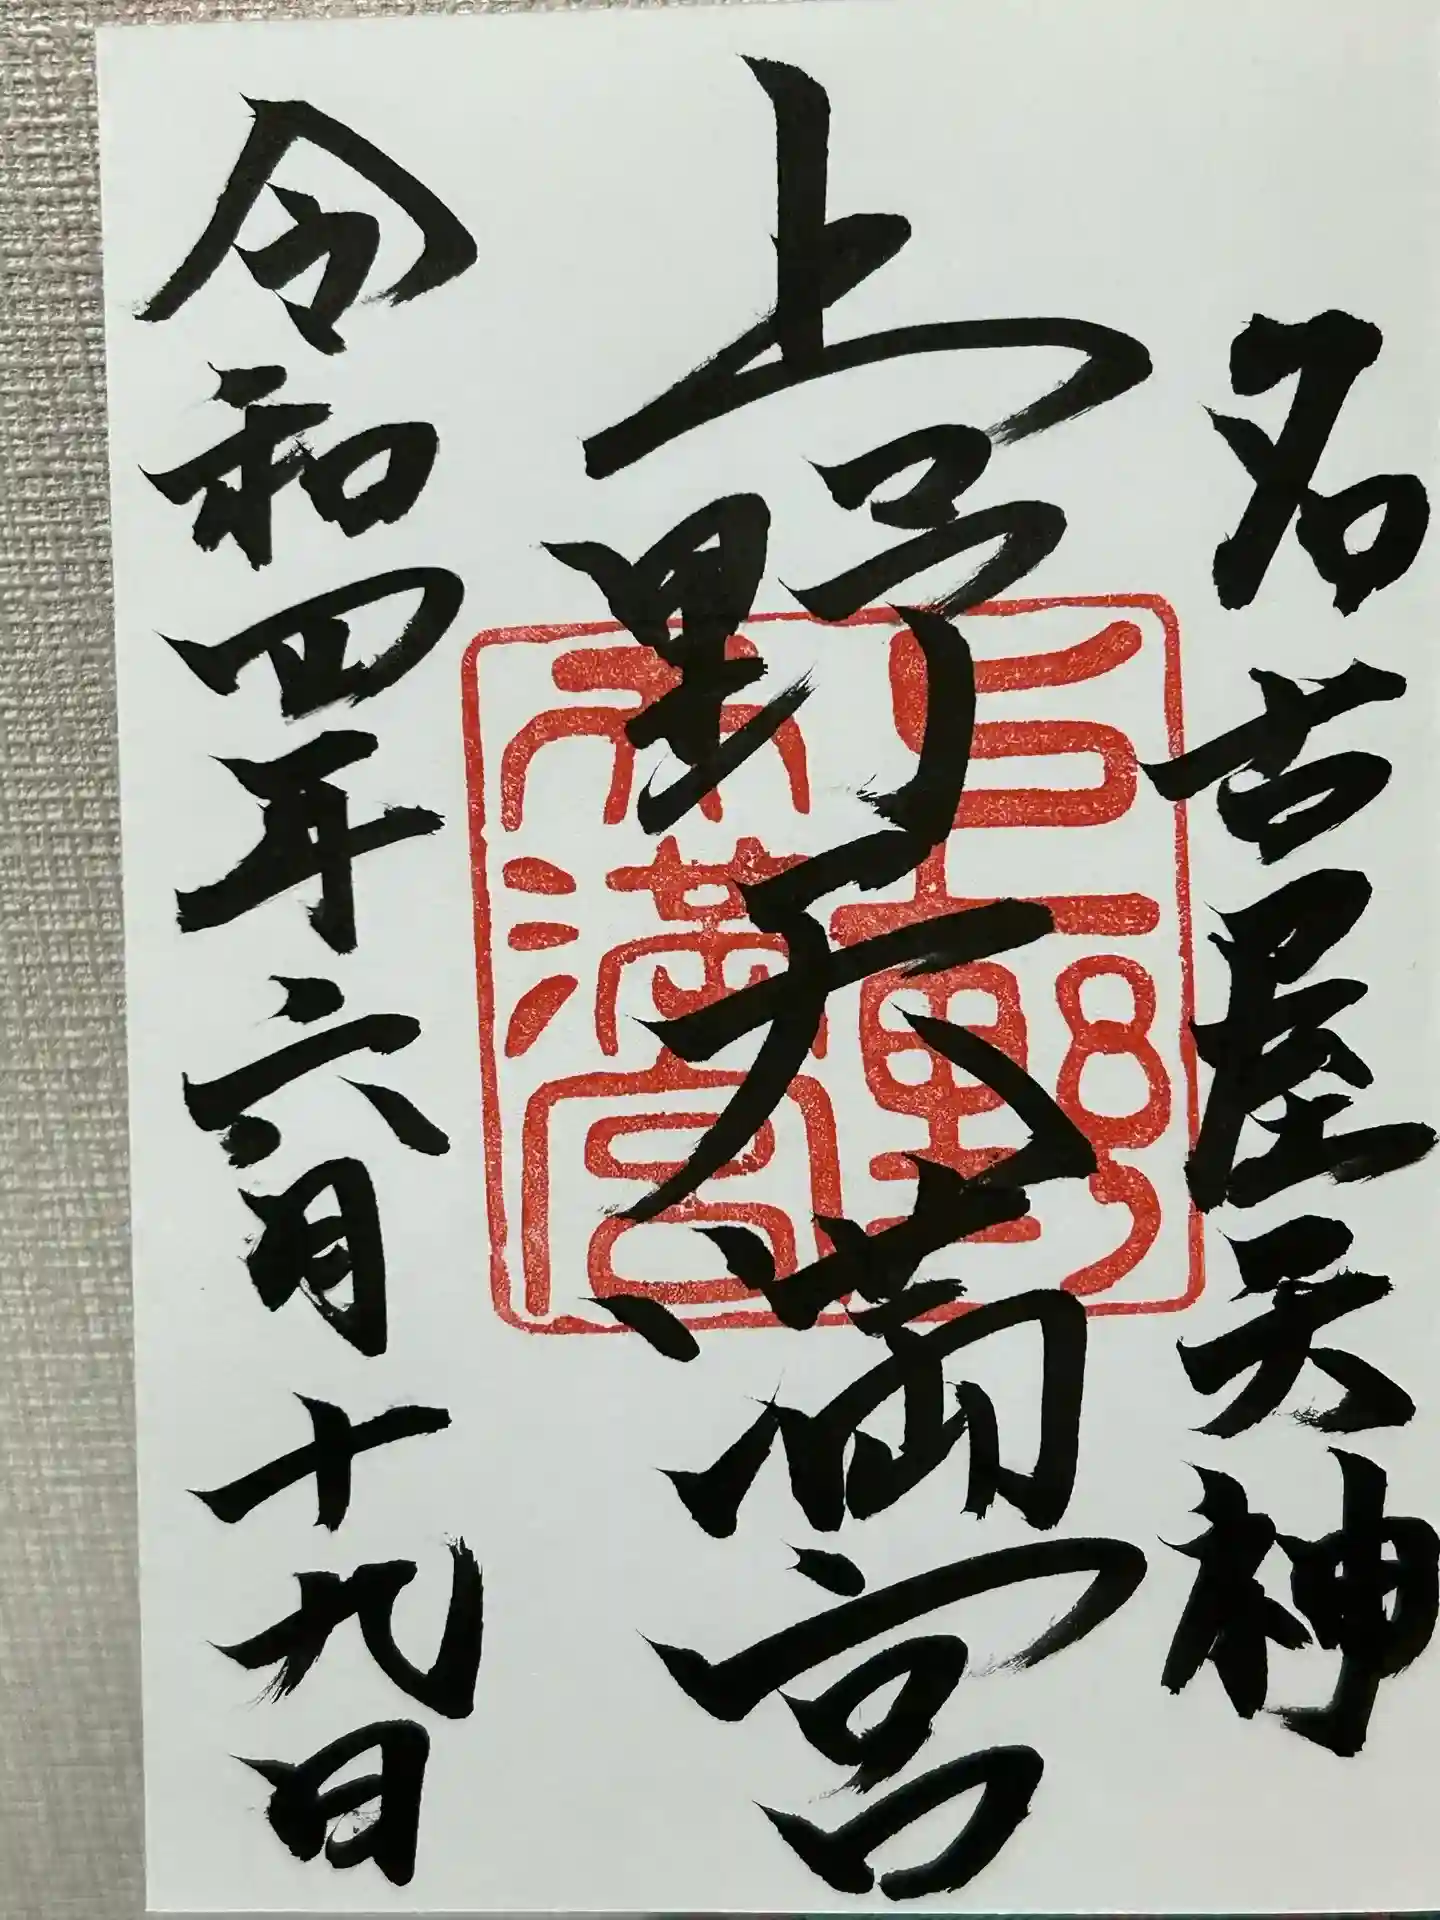 名古屋天神
上野天満宮
上野天満宮
令和四年六月十九日